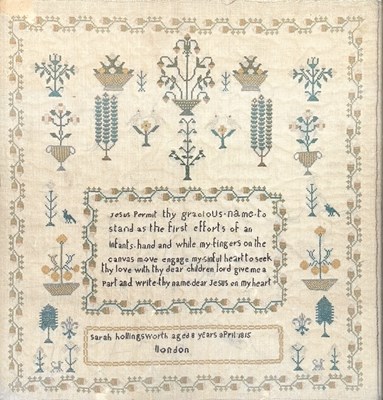 Jesus Permit thy gracious name to
stand as the first efforts of an
infants hand and while my fingers on the
canvas move engage my sinful heart to seek
thy love with thy dear children lord give me a
Part and write thy name dear Jesus on my heart
Sarah hollingsworth aged 8 years april 1815
london